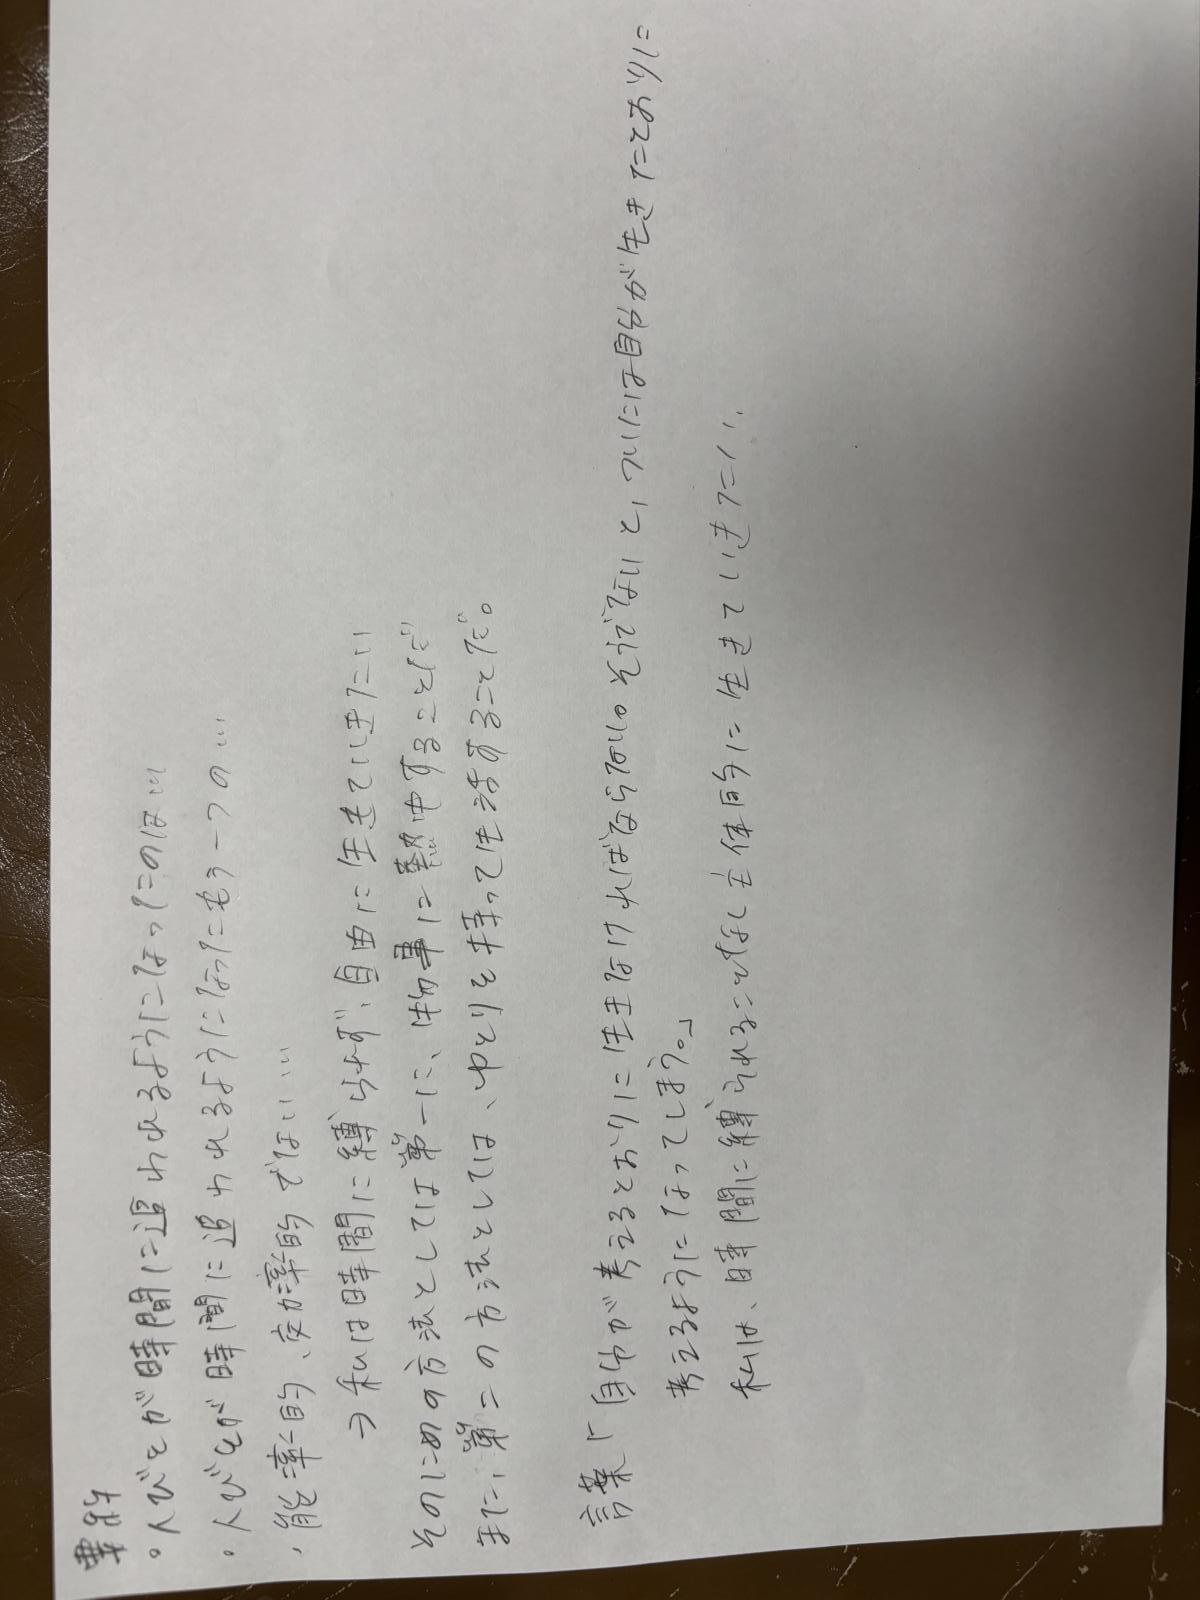 要約
・人びとが時間に追われるようになったのは…
・人びとが時間に追われるようになったもう一つの…
・能率的、効率的でない…
→私は時間に縛られず、自由に生きていきたい
そのための方法としては第一に、物事に熱中することだ
また、第二の方法としては、ゆとりを持って生活することだ。
言葉「自分が考えるとおりに生きなければならない。そうでないと、ついには自分が生きたとおりに
考えるようになってしまう。」
私は、時間に縛られることなく主体的に生きていきたい…